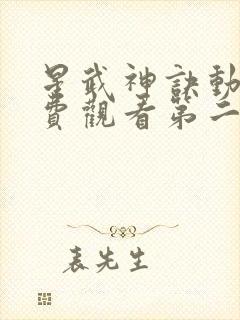 星武神訣動
費觀看第二
表先生